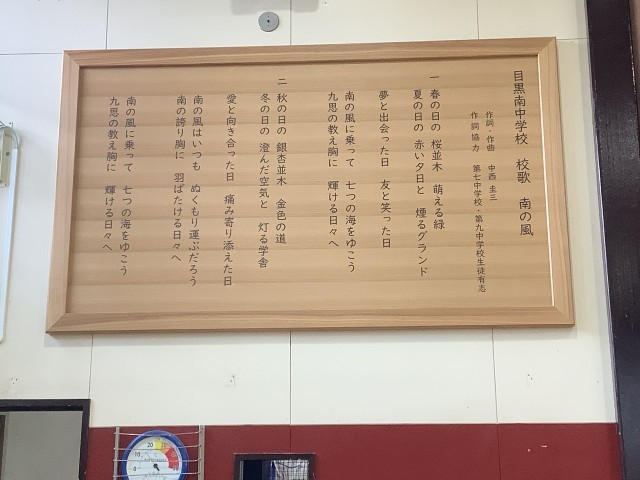 目黒南中学校　校歌　南の風
作詞・作曲　中西 圭三
作詞協力　第七中学校・第九中学校生徒有志
一　春の日の　桜並木　萌える緑
夏の日の　赤い夕日と　煙るグランド
夢と出会った日　友と笑った日
南の風に乗って　七つの海をゆこう
九思の教え胸に　輝ける日々へ
二　秋の日の　銀杏並木　金色の道
冬の日の　澄んだ空気と　灯る学舎
愛と向き合った日　痛み寄り添えた日
南の風はいつも　ぬくもり運ぶだろう
南の誇り胸に　羽ばたける日々へ
南の風に乗って　七つの海をゆこう
九思の教え胸に　輝ける日々へ